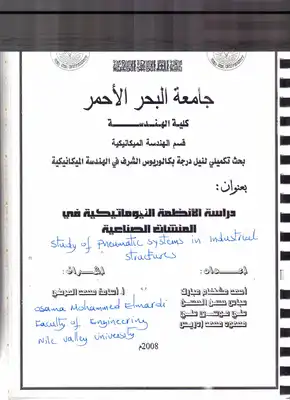 جامعة البحر الأحمر
كلية الهندسة
قسم الهندسة الميكانيكية
بحث تكميلي لنيل درجة بكالوريوس الشرف في الهندسة الميكانيكية
بعنوان:
دراسة الأنظمة النيوماتيكية في
المنشآت الصناعية
Study of pneumatic systems in Industrial
structures
إعداد:
أحمد مشخام مبارك
عباس سبل الحسن
علي موسى علي
مسعود محمد إدريس
إشراف:
أ. أسامة محمد المرضي
Osama Mohammed Elmardi
Faculty of Engineering
Nile Valley University
2008م